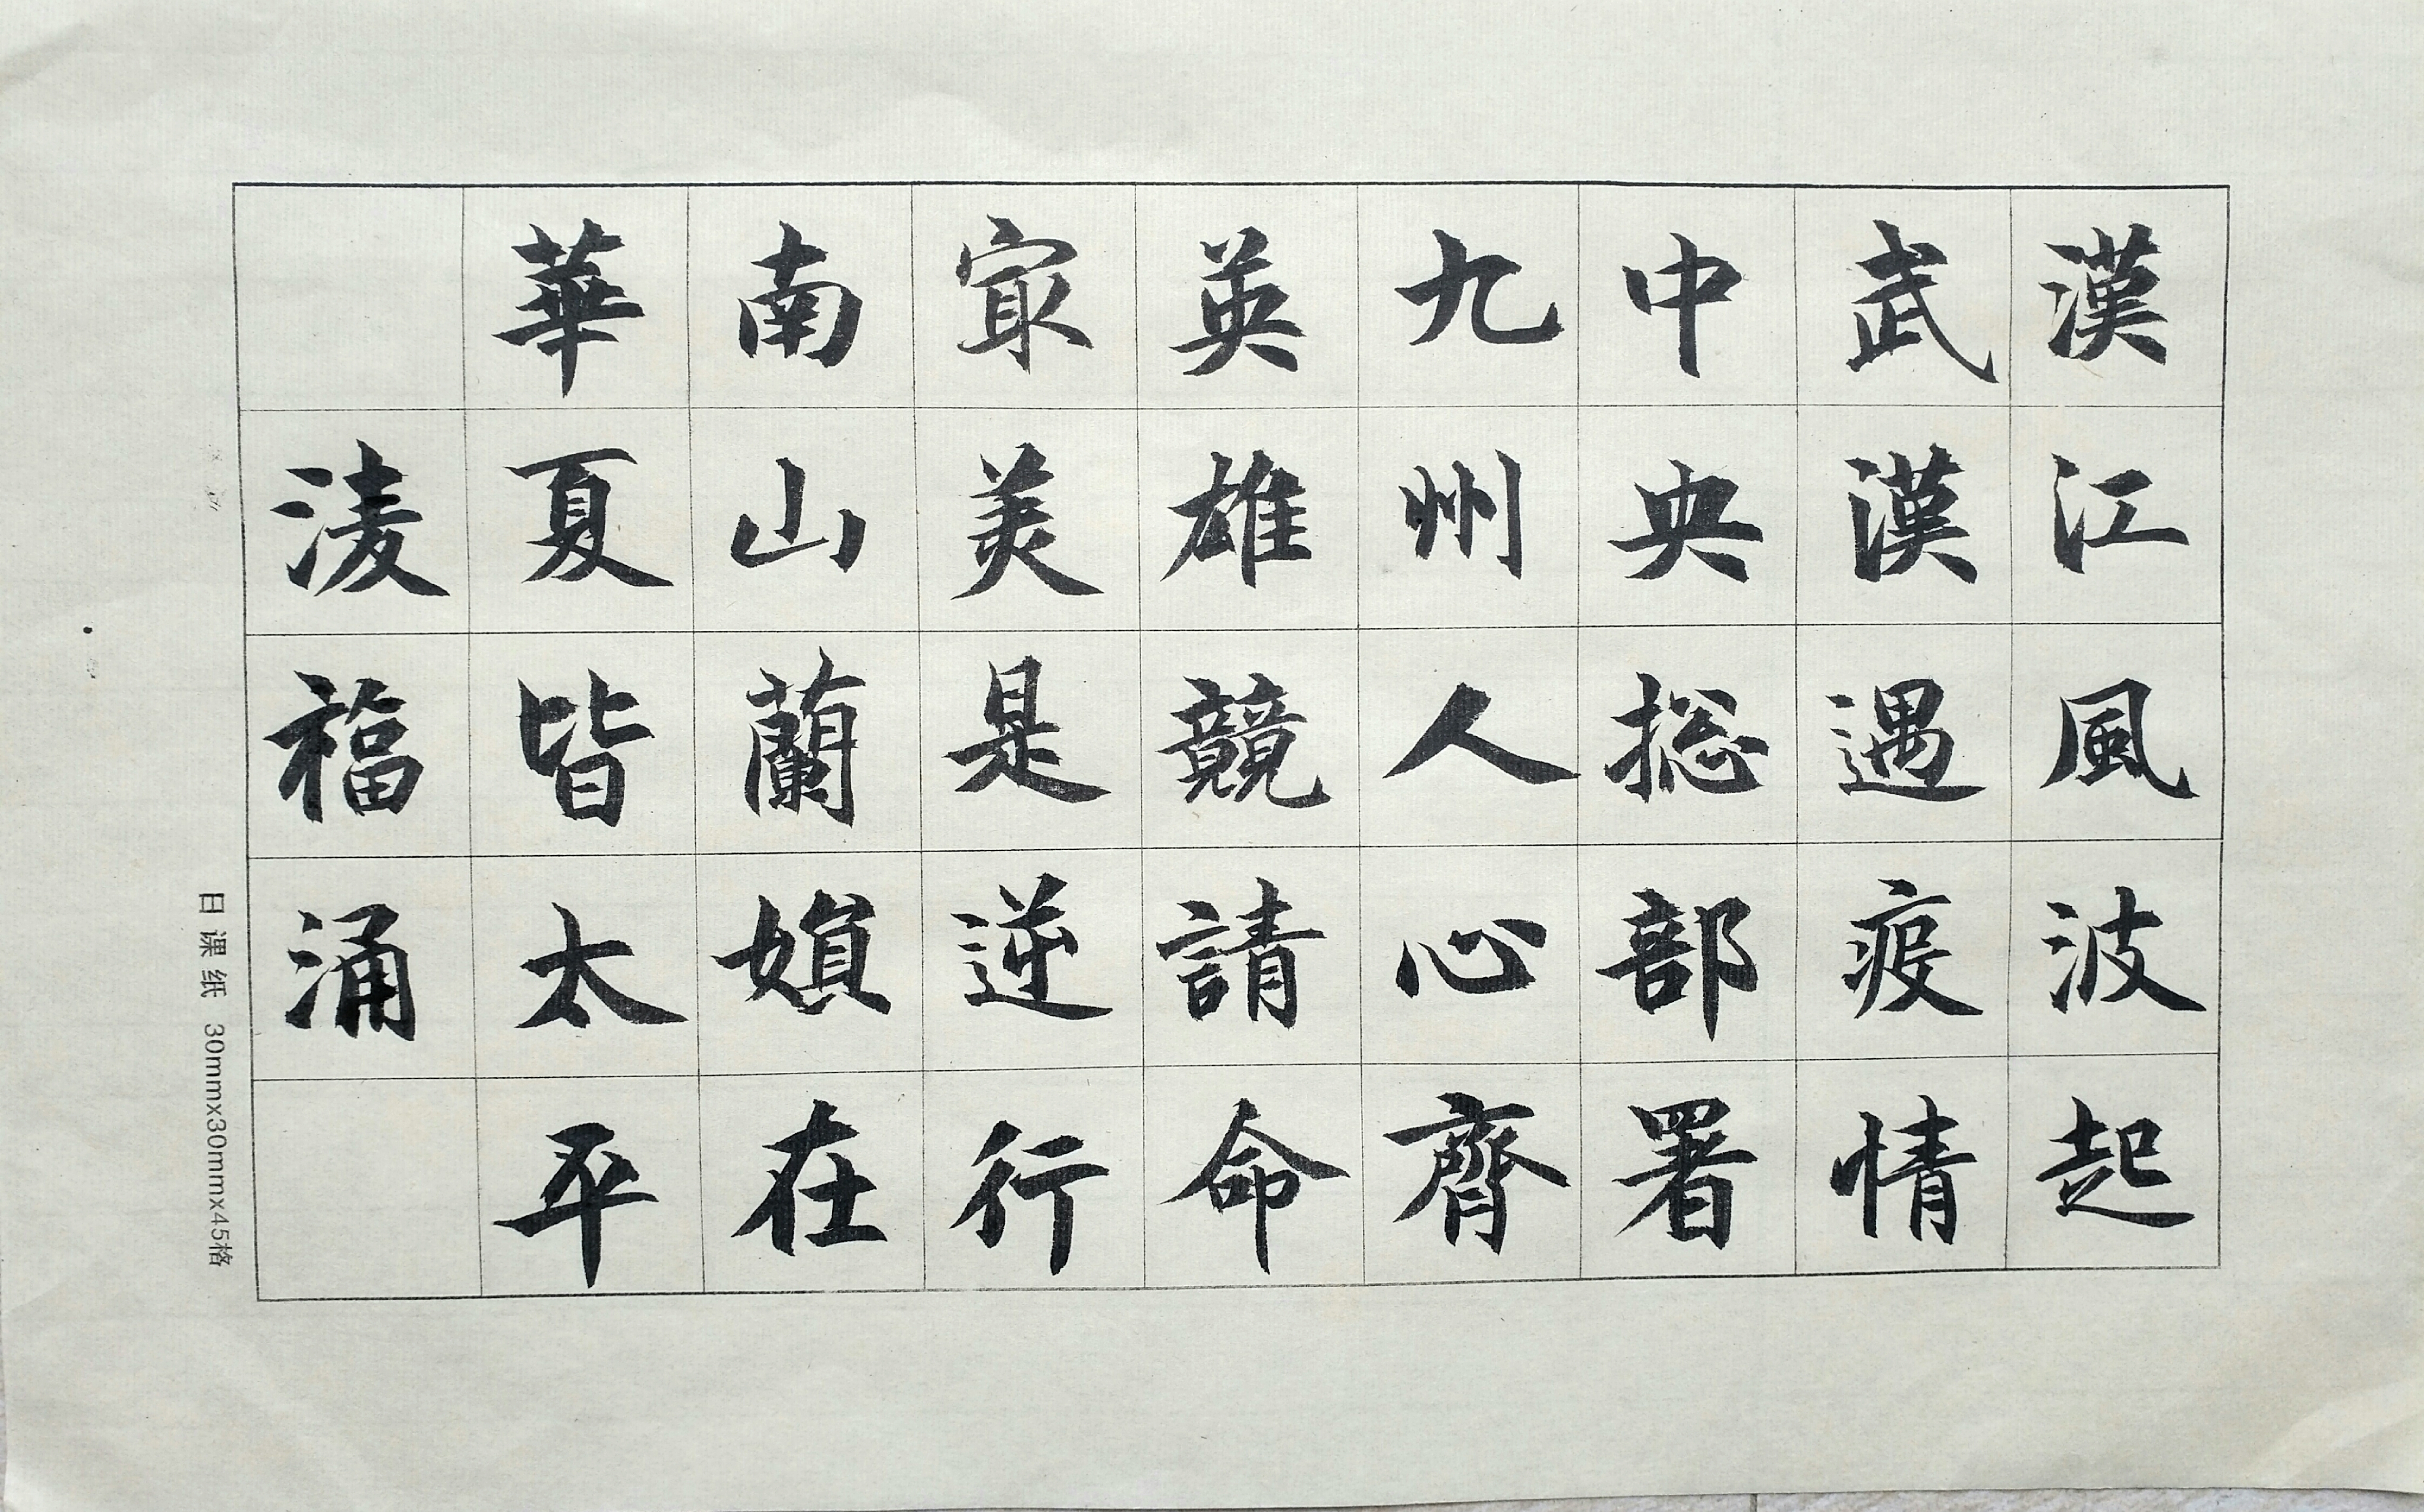 漢江風波起
武漢遇疫情
中央捴部署
九州人心齊
英雄競請命
㝡美是逆行
南山蘭娟在
華夏皆太平
淩福涌
日课纸 30mmx30mmx45格